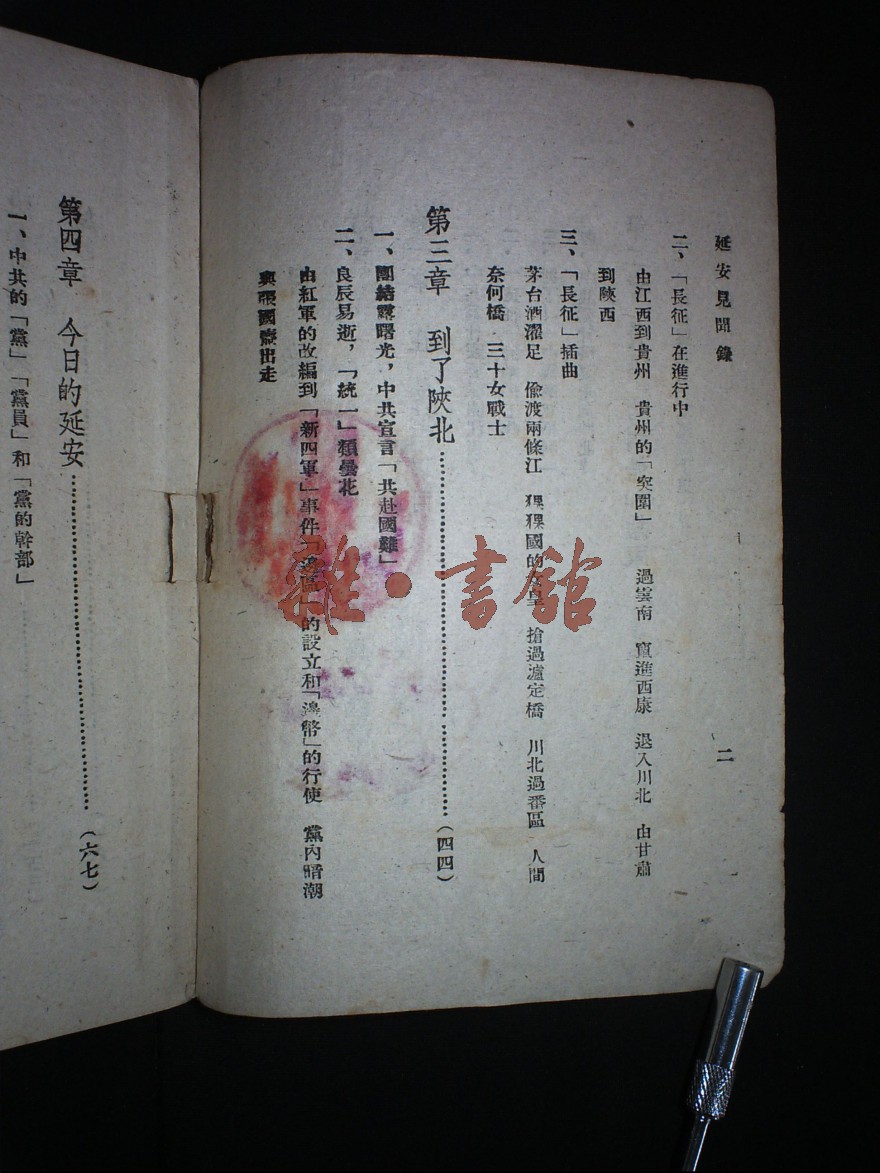 延安見聞錄
二
二、「長征」在進行中
由江西到貴州 貴州的「突圍」 過雲南 竄進西康 退入川北 由甘肅
到陝西
三、「長征」插曲
茅台酒濯足 偸渡兩條江 猓猓國的女皇 搶過瀘定橋 川北過番區 人間
奈何橋 三十女戰士
第三章 到了陝北……………………………………(四四)
一、團結露曙光,中共宣言「共赴國難」
二、良辰易逝,「統一」類曇花
由紅軍的改編到「新四軍」事件「邊區」的設立和「邊幣」的行使 黨內暗潮
與張國燾出走
第四章 今日的延安……………………………………(六七)
一、中共的「黨」「黨員」和「黨的幹部」
雜·書館